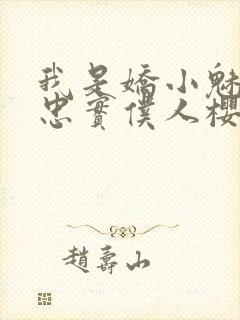 我是嬌小魅
忠實僕人櫻
趙壽山